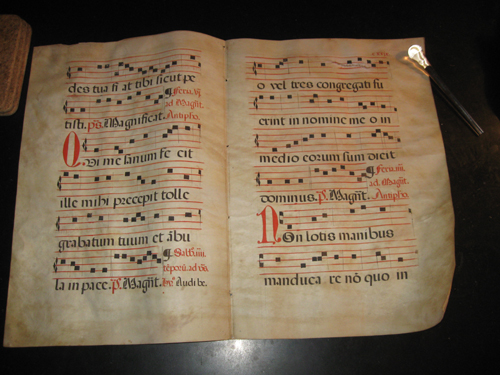 des tua fi at tibi sicut pe
tisti. ps. Magnificat. Antipho.
ad Magnt.
Qui me sanum fe cit
ille mihi precepit tolle
grabatum tuum et ābu
la in pace. ps. Magnt.
o vel tres congregati fu
erint in nomine me o in
medio eorum sum dicit
dominus. ps. Magnt. Antipho.
ad. Magnt.
Non lotis manibus
manduca re nō quo in